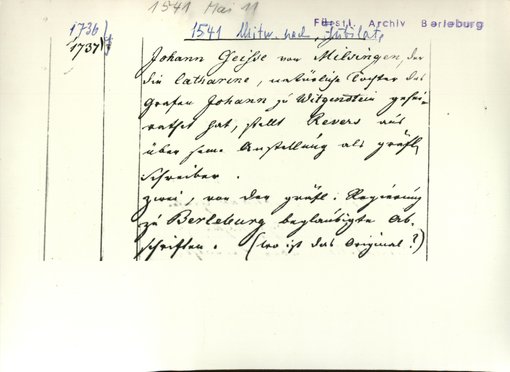 1541 Mai 11
Fürstl. Archiv Berleburg
1736
1737
1541 Mittw. nach Jubilate
Johann Geisse von Milsingen, der
die Catharine, natürliche Tochter des
Grafen Johann zu Witgenstein gehei-
rathet hat, stellt Revers aus
über seine Anstellung als gräfl.
Schreiber.
zwei, von der gräfl. Regierung
zu Berleburg beglaubigte Ab-
schriften. (wo ist das Original?)